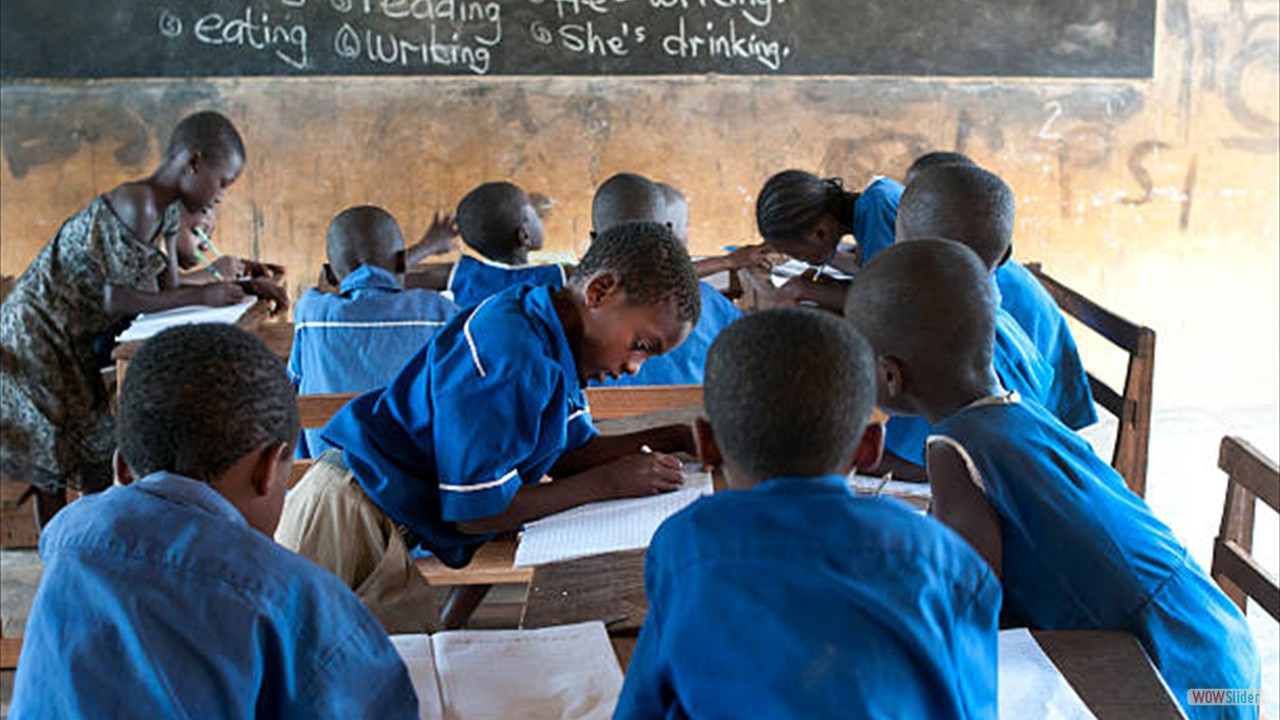 ③ reading ③ He's writing.
⑤ eating ⑥ Writing ⑥ She's drinking.
2
PSI
WOWSlider